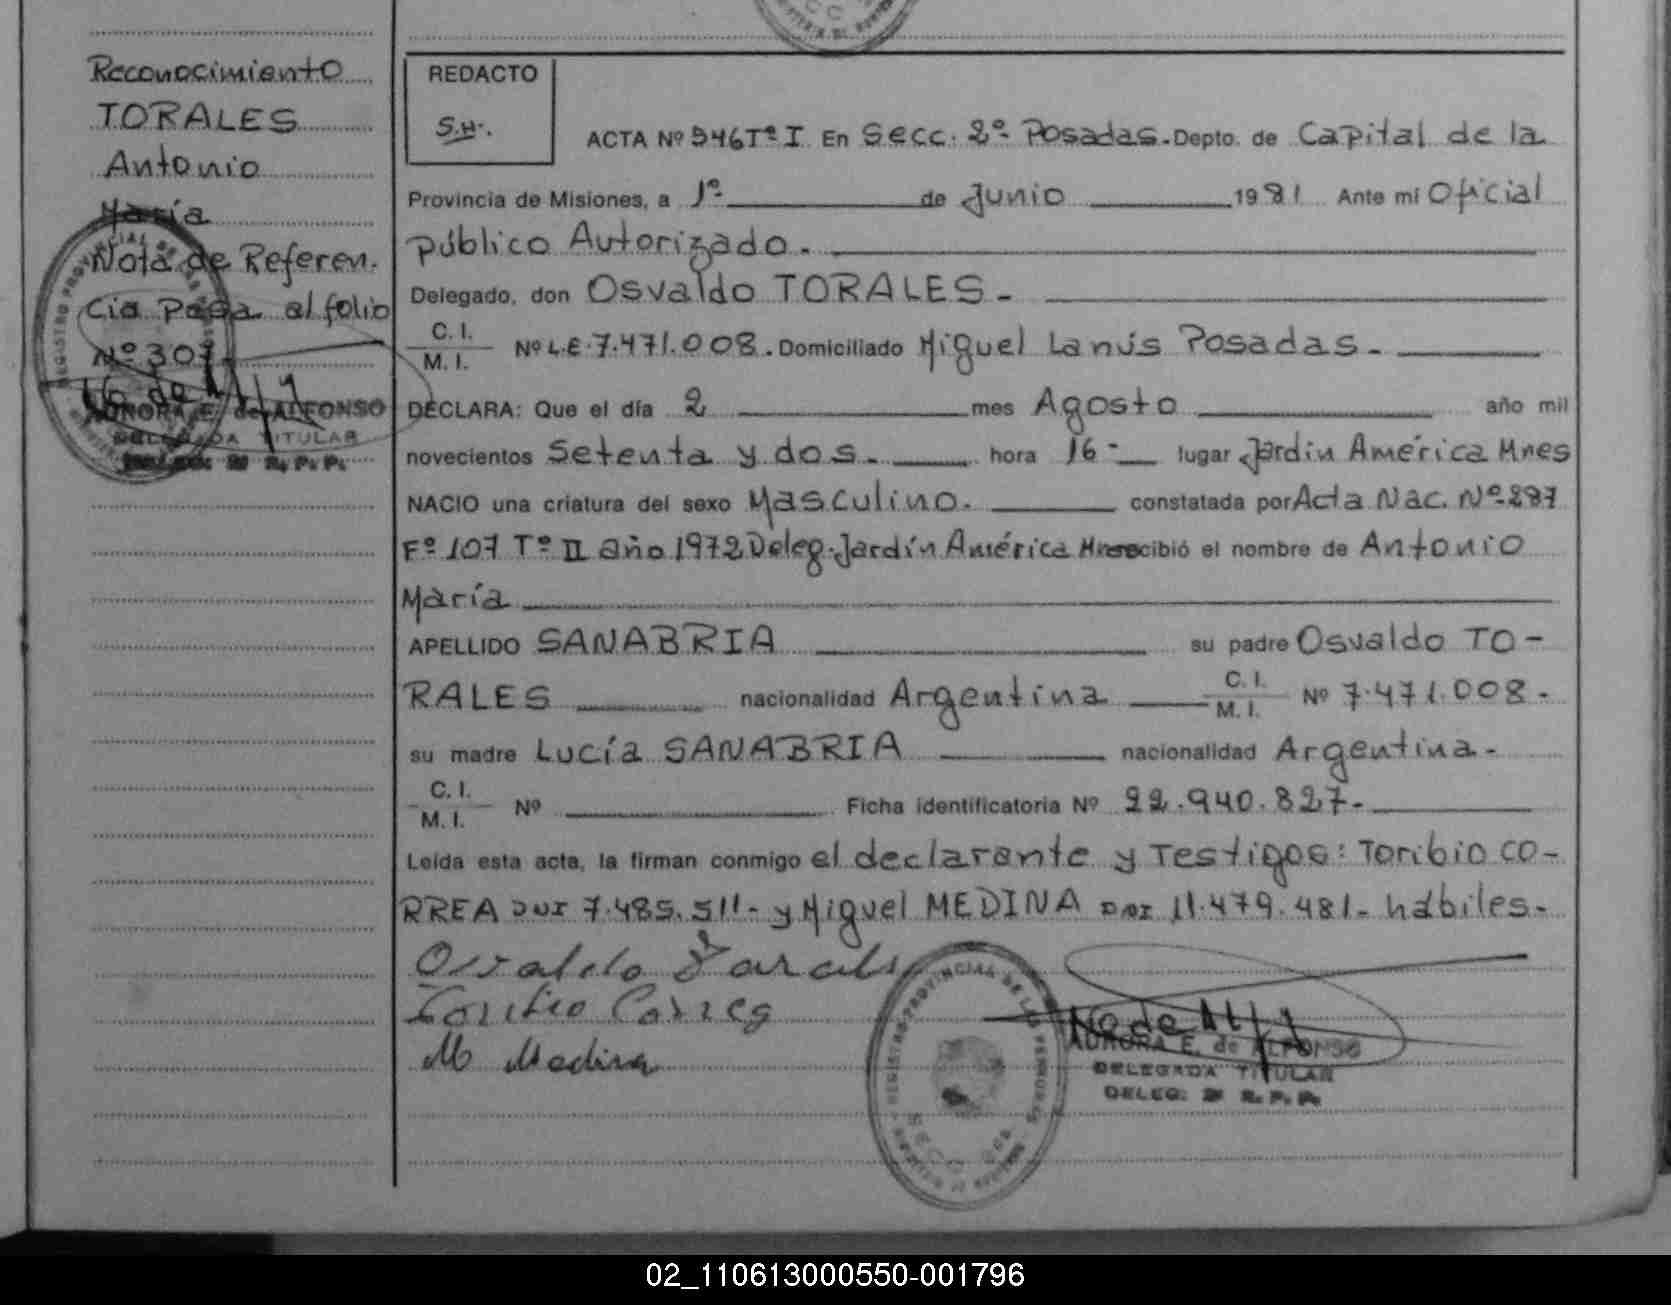 Reconocimiento
TORALES
Antonio
María
Nota de Referen.
cia Pasa al folio
Nº 307
AURORA E. de ALFONSO
DELEGADA TITULAR
REDACTO
S.H.
ACTA Nº 546 Tº I En Secc. 2º Posadas. Depto. de Capital de la
Provincia de Misiones, a 1º de Junio 1981 Ante mi Oficial
público Autorizado.
Delegado, don Osvaldo TORALES.
C. I.
M. I. Nº L.E. 7.471.008. Domiciliado Miguel Lanús Posadas.
DECLARA: Que el día 2 mes Agosto año mil
novecientos setenta y dos. hora 16 lugar Jardín América Mnes
NACIO una criatura del sexo Masculino. constatada por Acta Nac. Nº 287
Fº 107 Tº II año 1972 Deleg. Jardín América Mnes recibió el nombre de Antonio
María
APELLIDO SANABRIA su padre Osvaldo TO-
RALES nacionalidad Argentina C. I. M. I. Nº 7.471.008.
su madre Lucía SANABRIA nacionalidad Argentina.
C. I.
M. I. Nº Ficha identificatoria Nº 22.940.827.
Leída esta acta, la firman conmigo el declarante y Testigos: Toribio CO-
RREA DNI 7.485.511- y Miguel MEDINA DNI 11.479.481- hábiles.
Osvaldo Torales
Toribio Correa
M Medina
REGISTRO PROVINCIAL DE LAS PERSONAS
AURORA E. de ALFONSO
DELEGADA TITULAR
DELEG. 2ª R. P. P.
02_110613000550-001796